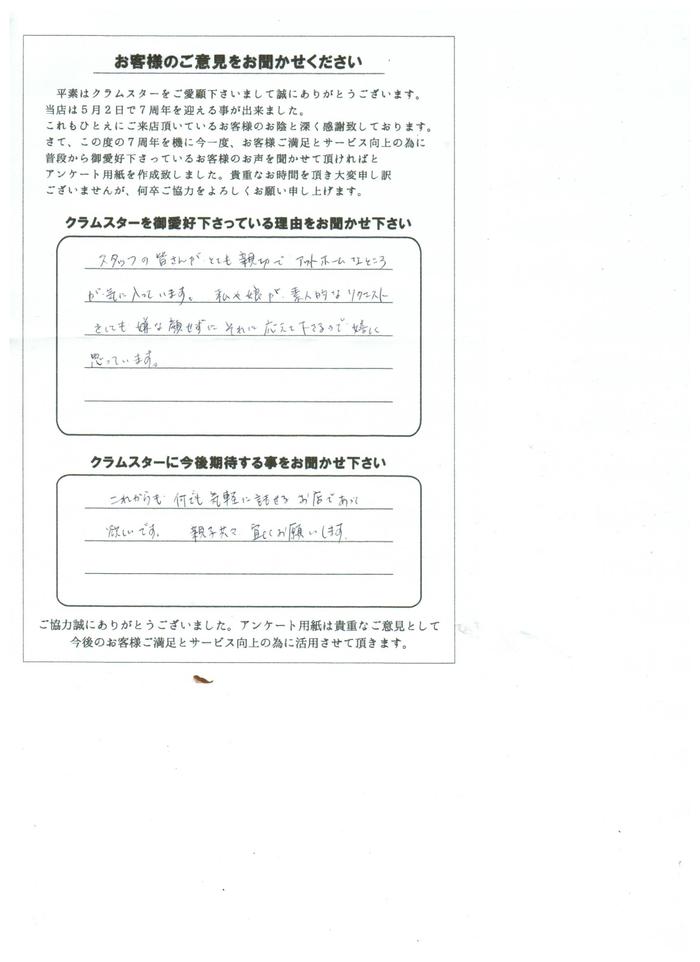 お客様のご意見をお聞かせください
平素はクラムスターをご愛顧下さいまして誠にありがとうございます。
当店は５月２日で７周年を迎える事が出来ました。
これもひとえにご来店頂いているお客様のお陰と深く感謝致しております。
さて、この度の７周年を機に今一度、お客様ご満足とサービス向上の為に
普段から御愛好下さっているお客様のお声を聞かせて頂ければと
アンケート用紙を作成致しました。貴重なお時間を頂き大変申し訳
ございませんが、何卒ご協力をよろしくお願い申し上げます。
クラムスターを御愛好下さっている理由をお聞かせ下さい
スタッフの皆さんがとても親切でアットホームなところ
が気に入っています。 私や娘が、素人的なリクエスト
をしても嫌な顔せずにそれに応えて下さるので嬉しく
思っています。
クラムスターに今後期待する事をお聞かせ下さい
これからも何でも気軽に話せるお店であって
欲しいです。 親子共々宜しくお願いします。
ご協力誠にありがとうございました。アンケート用紙は貴重なご意見として
今後のお客様ご満足とサービス向上の為に活用させて頂きます。